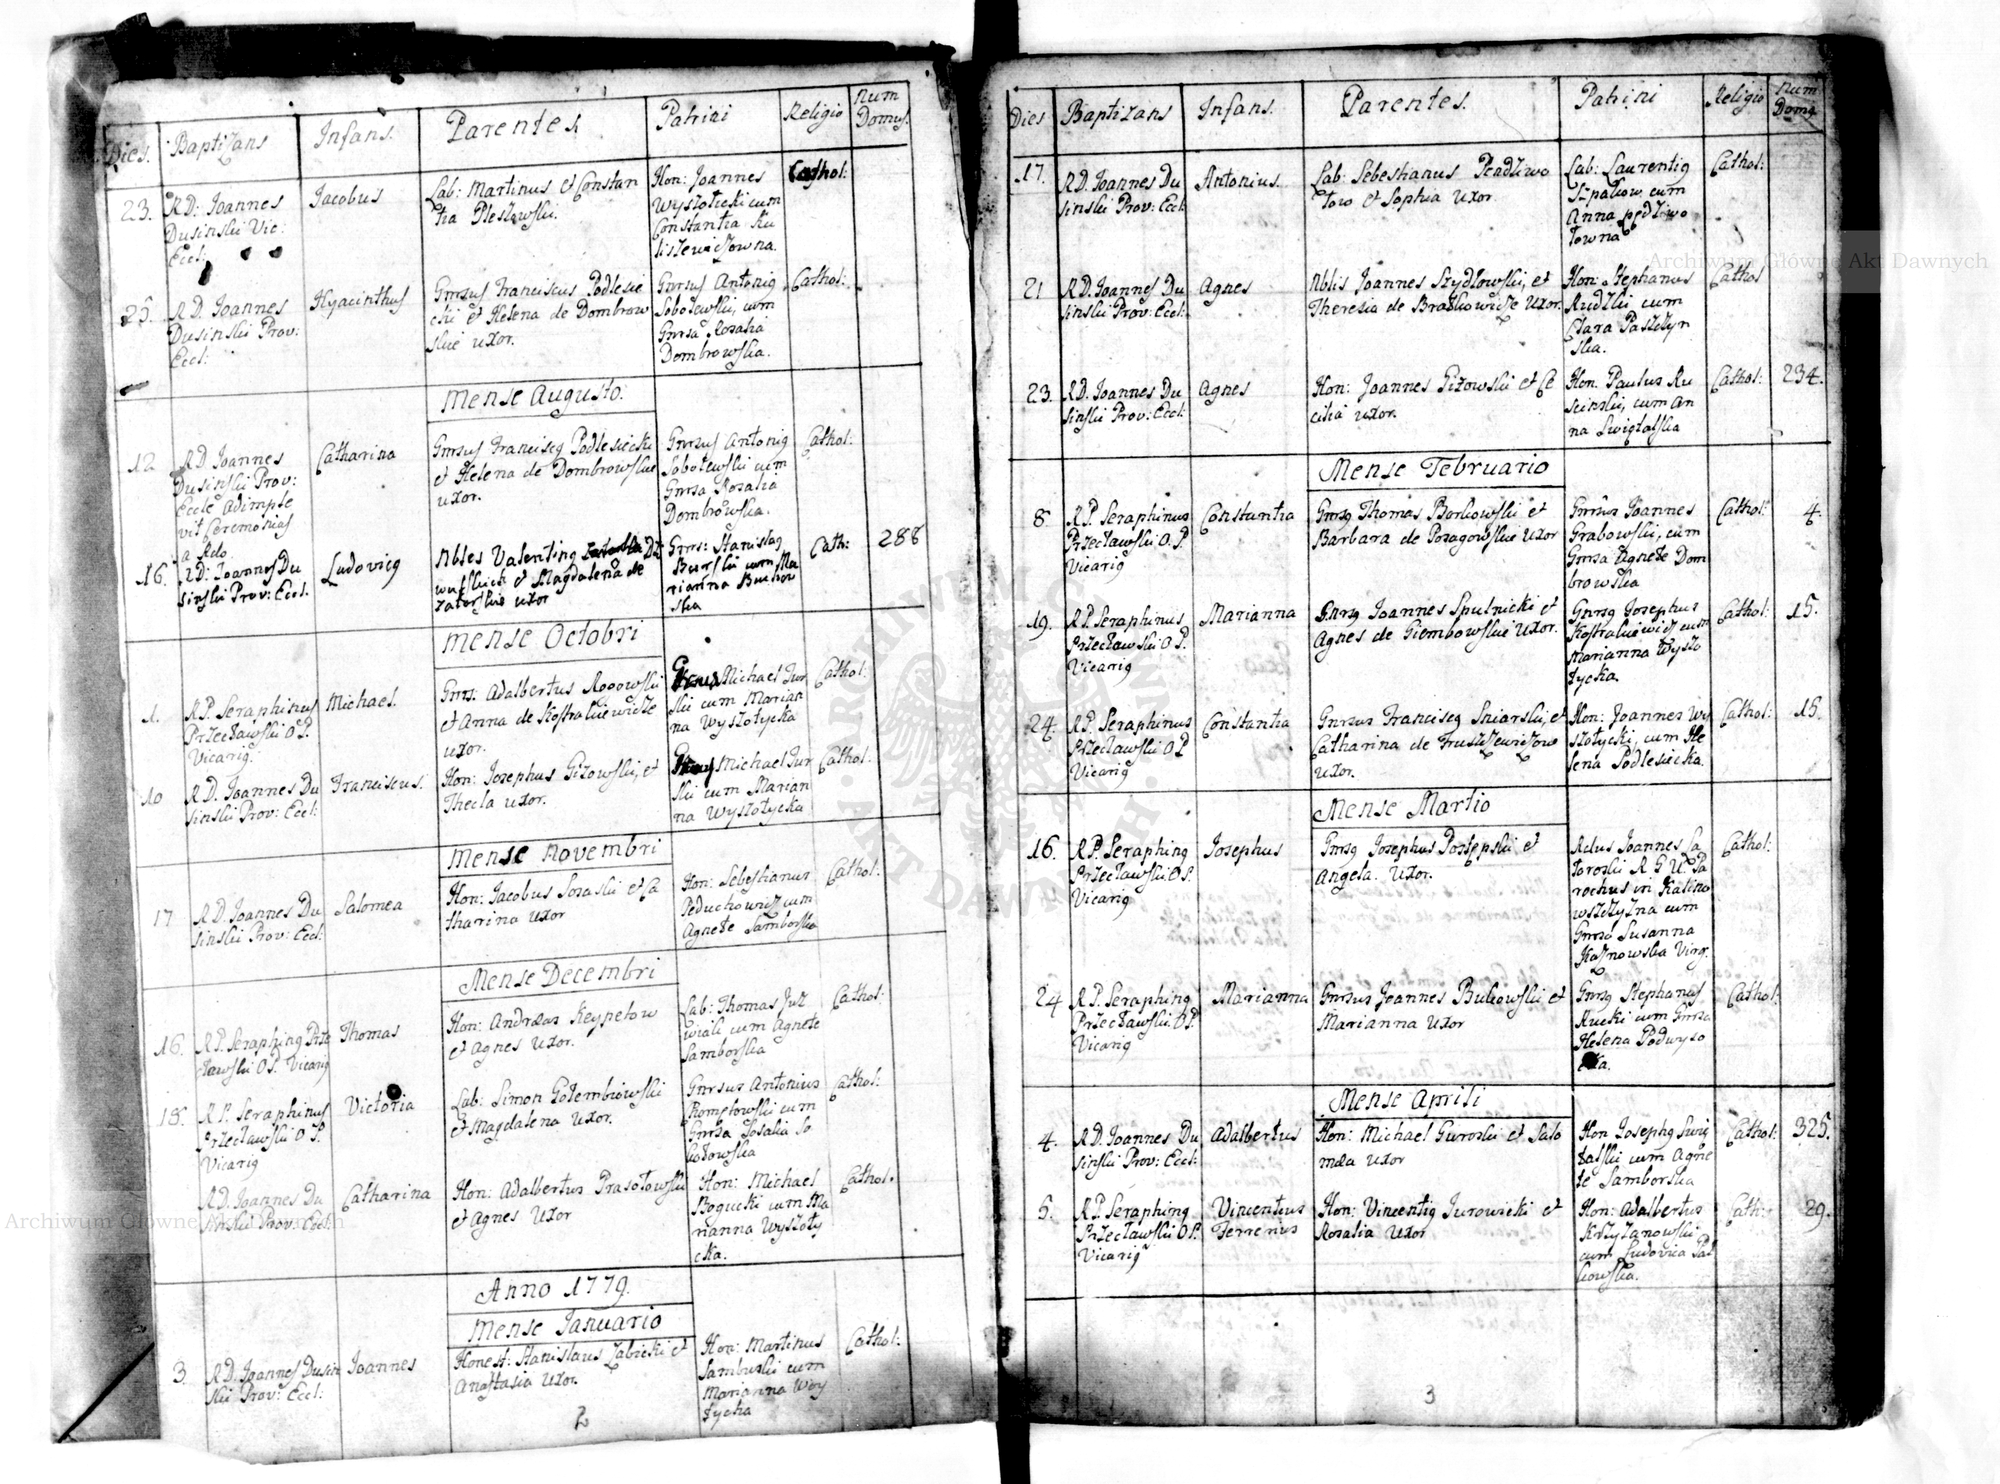 Dies. Baptizans Infans. Parentes Patrini Religio Num Domus.
23. RD: Joannes Dusinski Vic: Eccl:
Jacobus
Lab: Martinus et Constan
tia Pleszowski.
Hon: Joannes
Wyszoticki cum
Constantia Ku
liszewiczowna.
Cathol:
25. RD. Joannes
Dusinski Prov:
Eccl:
Hyacinthus
Gnrsus Franciscus Podlesie
cki et Helena de Dombrow
skie uxor.
Gnrsus Antonig
Sobolewski, cum
Gnrsa Rosalia
Dombrowska.
Cathol:
Mense Augusto.
12 RD Joannes
Dusinski Prov:
Eccle adimple
vit Ceremonias
a Rdo
Catharina
Gnrsus Franciscg Podlesiecki
et Helena de Dombrowskie
uxor.
Gnrsus Antonig
Sobolewski cum
Gnrsa Rosalia
Dombrowska.
Cathol:
16. RD: Joannes Du
sinski Prov: Eccl.
Ludovicg
Nbles Valenting
et Magdalena de
Zatorskie uxor
Gnrs: Stanislag
Burski cum Ma
rianna Burkow
ska
Cath:
288
Mense Octobri
1. RP. Seraphinus
Przecławski OP.
Vicarig.
Michael.
Gnrs: Adalbertus Rogowski
et Anna de Kostrakiewicze
uxor.
Michael Jur
ski cum Marian
na Wyszotycka
Cathol:
10 RD. Joannes Du
sinski Prov: Eccl:
Franciscus.
Hon: Josephus Gizowski, et
Thecla uxor.
Michael Jur
ski cum Marian
na Wyszotycka
Cathol:
Mense Novembri
17 RD. Joannes Du
sinski Prov: Eccl:
Salomea
Hon: Jacobus Sosaski et Ca
tharina uxor
Hon: Sebestianus
Peduchowicz cum
Agnete Samborska
Cathol:
Mense Decembri
16. RP. Seraphing Prze
cławski OP. Vicarig
Thomas
Hon: Andreas Keypetow
et Agnes uxor.
Lab: Thomas Juz
wiak cum Agnete
Samborska
Cathol:
18. RP. Seraphinus
Przecławski OP.
Vicarig
Victoria
Lab: Simon Gołembiowski
et Magdalena uxor.
Gnrsus Antonius
Romptowski cum
Gnrsa Rosalia So
botowska
Cathol:
RD. Joannes Du
sinski Prov: Eccl:
Catharina
Hon: Adalbertus Prasołowski
et Agnes uxor
Hon: Michael
Bogucki cum Ma
rianna Wyszoty
cka.
Cathol.
Anno 1779.
Mense Januario
3. RD. Joannes Dusin
ski Prov: Eccl:
Joannes
Honest: Stanislaus Zabicki et
Anastasia uxor.
Hon: Martinus
Samburski cum
Marianna Woy
tycha
Cathol:
2
Dies Baptizans Infans. Parentes. Patrini Religio Num Domg
17. RD. Joannes Du
sinski Prov: Eccl:
Antonius.
Lab: Sebestianus Pendziwo
tow et Sophia uxor.
Lab: Laurentig
Szpakow cum
Anna pędziwo
towna
Cathol:
21 RD. Joannes Du
sinski Prov: Eccl:
Agnes
Nblis Joannes Szydłowski, et
Theresia de Brackowicze uxor.
Hon: Stephanus
Rudzki cum
Clara Paszczyn
ska.
Cathol
23. RD. Joannes Du
sinski Prov: Eccl:
Agnes
Hon: Joannes Gizowski et Ce
cilia uxor.
Hon. Paulus Ru
scinski, cum An
na Swiętalska
Cathol:
234.
Mense Februario
8 RP. Seraphinus
Przecławski O.P.
Vicarig
Constantia
Gnrsg Thomas Borkowski et
Barbara de Pozagowskie uxor
Gnrsus Joannes
Grabowski, cum
Gnrsa Agnete Dom
browska
Cathol:
4.
19. RP. Seraphinus
Przecławski OP.
Vicarig
Marianna
Gnrsg Joannes Spulnicki et
Agnes de Giembowskie uxor.
Gnrsg Josephus
Kostrakiewicz cum
Marianna Wyszo
tycka.
Cathol:
15.
24. RP. Seraphinus
Przecławski OP
Vicarig
Constantia
Gnrsus Franciscg Sniarski, et
Catharina de Truszczewiczow
uxor.
Hon: Joannes Wy
szotycki, cum He
lena Podlesiecka.
Cathol:
15.
Mense Martio
16. RP. Seraphing
Przecławski OP.
Vicarig
Josephus
Gnrsg Josephus Postępski et
Angela. uxor.
Rdus Joannes Ja
Parochus in Kalino
wszczyzna cum
Gnrsa Susanna
Kaznowska Virg.
Cathol:
24 RP. Seraphing
Przecławski OP.
Vicarig
Marianna
Gnrsus Joannes Bukowski et
Marianna uxor
Gnrsg Stephanus
Rucki cum Gnrsa
Helena Podwyso
cka.
Cathol:
Mense Aprili
4. RD. Joannes Du
sinski Prov: Eccl:
Adalbertus
Hon: Michael Guroski et Salo
mea uxor
Hon Josephg Swię
talski cum Agne
te Samborska
Cathol:
325.
5. RP. Seraphing
Przecławski OP.
Vicarig
Vincentius
Ferrerius
Hon: Vincentig Jurowicki et
Rosalia uxor
Hon: Adalbertus
Krzyzanowski
cum Ludovica Pal
kowska.
Cath:
29.
3
Archiwum Główne Akt Dawnych
ARCHIWUM GŁÓWNE AKT DAWNYCH
Archiwum Główne Akt Dawnych